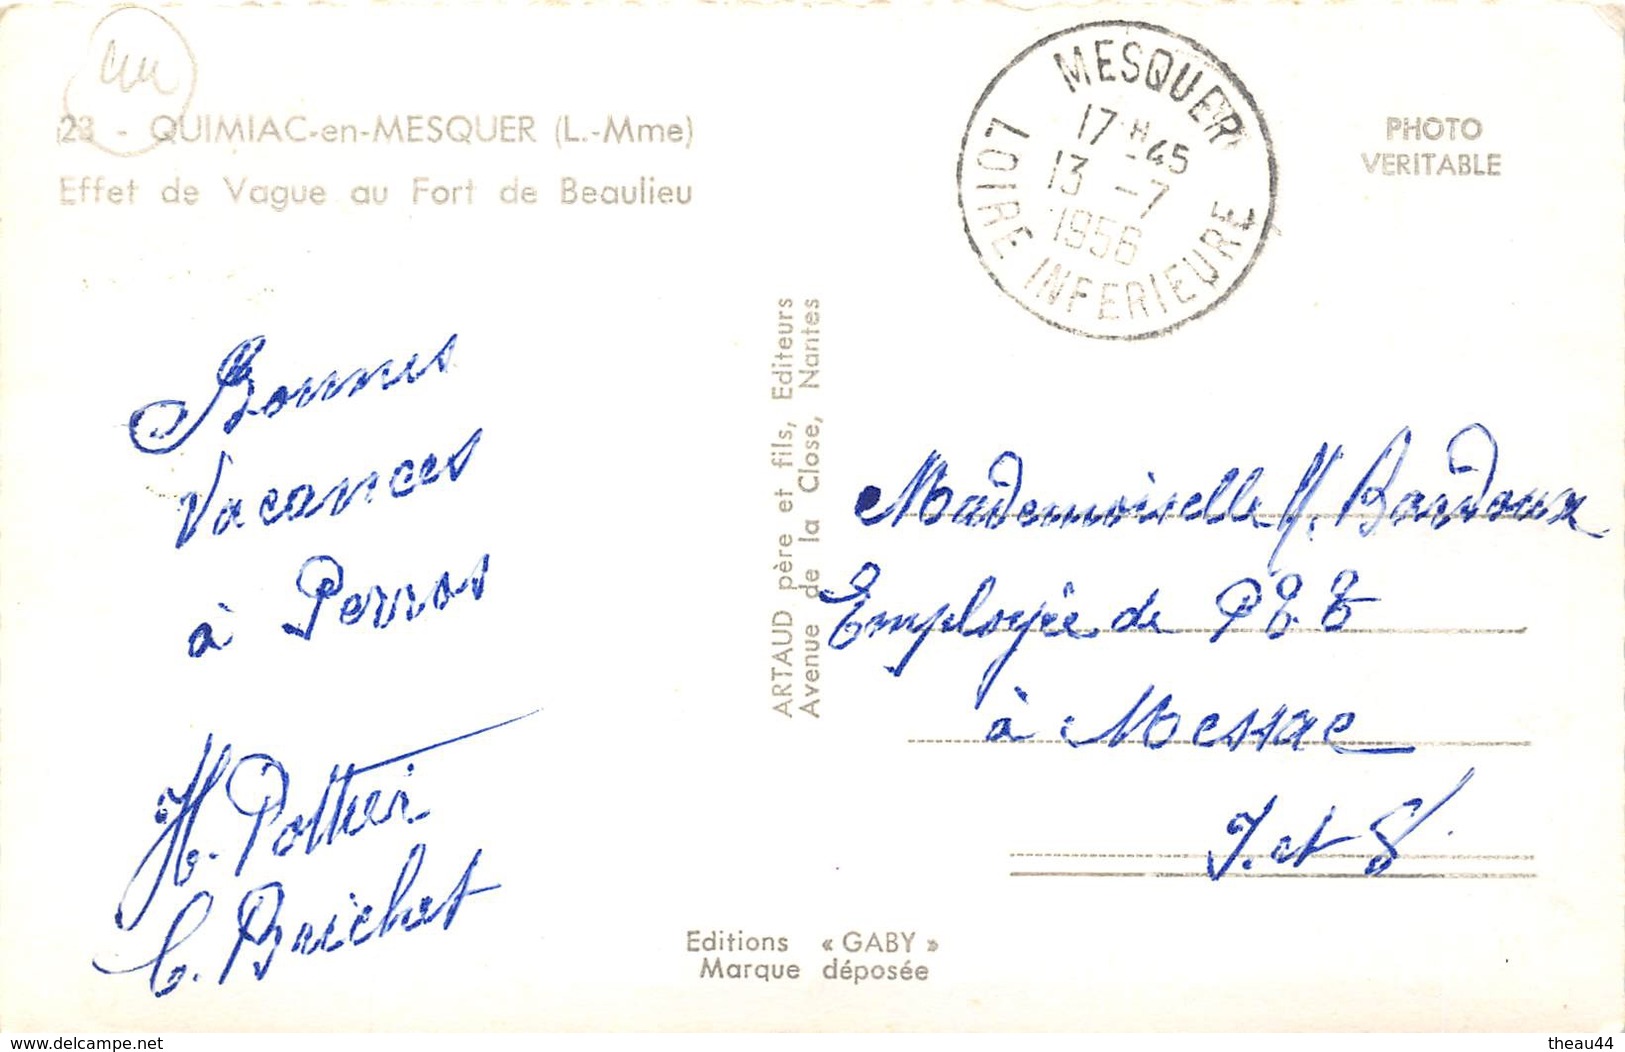 44
23 - QUIMIAC-en-MESQUER (L.-Mme)
Effet de Vague au Fort de Beaulieu
MESQUER
17 H 45
13 - 7
1956
LOIRE INFERIEURE
PHOTO
VERITABLE
Bonnes
Vacances
à Perros
H. Pottier
C. Brichet
ARTAUD père et fils, Editeurs
Avenue de la Close, Nantes
Mademoiselle Y. Bardoux
Employée de PTT
à Messac
I. et V.
Editions « GABY »
Marque déposée
https://www.delcampe.net
theau44